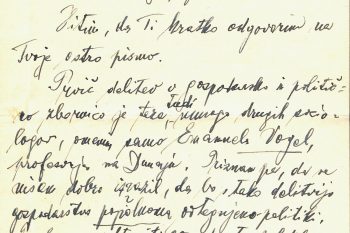 Hitim, da Ti kratko odgovorim na
Tvoje ostro pismo.
Prvič delitev v gospodarsko i politič-
no zbornico je teza tudi mnogo drugih socio-
logov, omenim samo Emanuela Vogel,
profesorja na Dunaju. Priznam pa, da se
nisem dobro izrazil, da bo s tako delitvijo
gospodarstvo popolnoma odtegnjeno politiki,